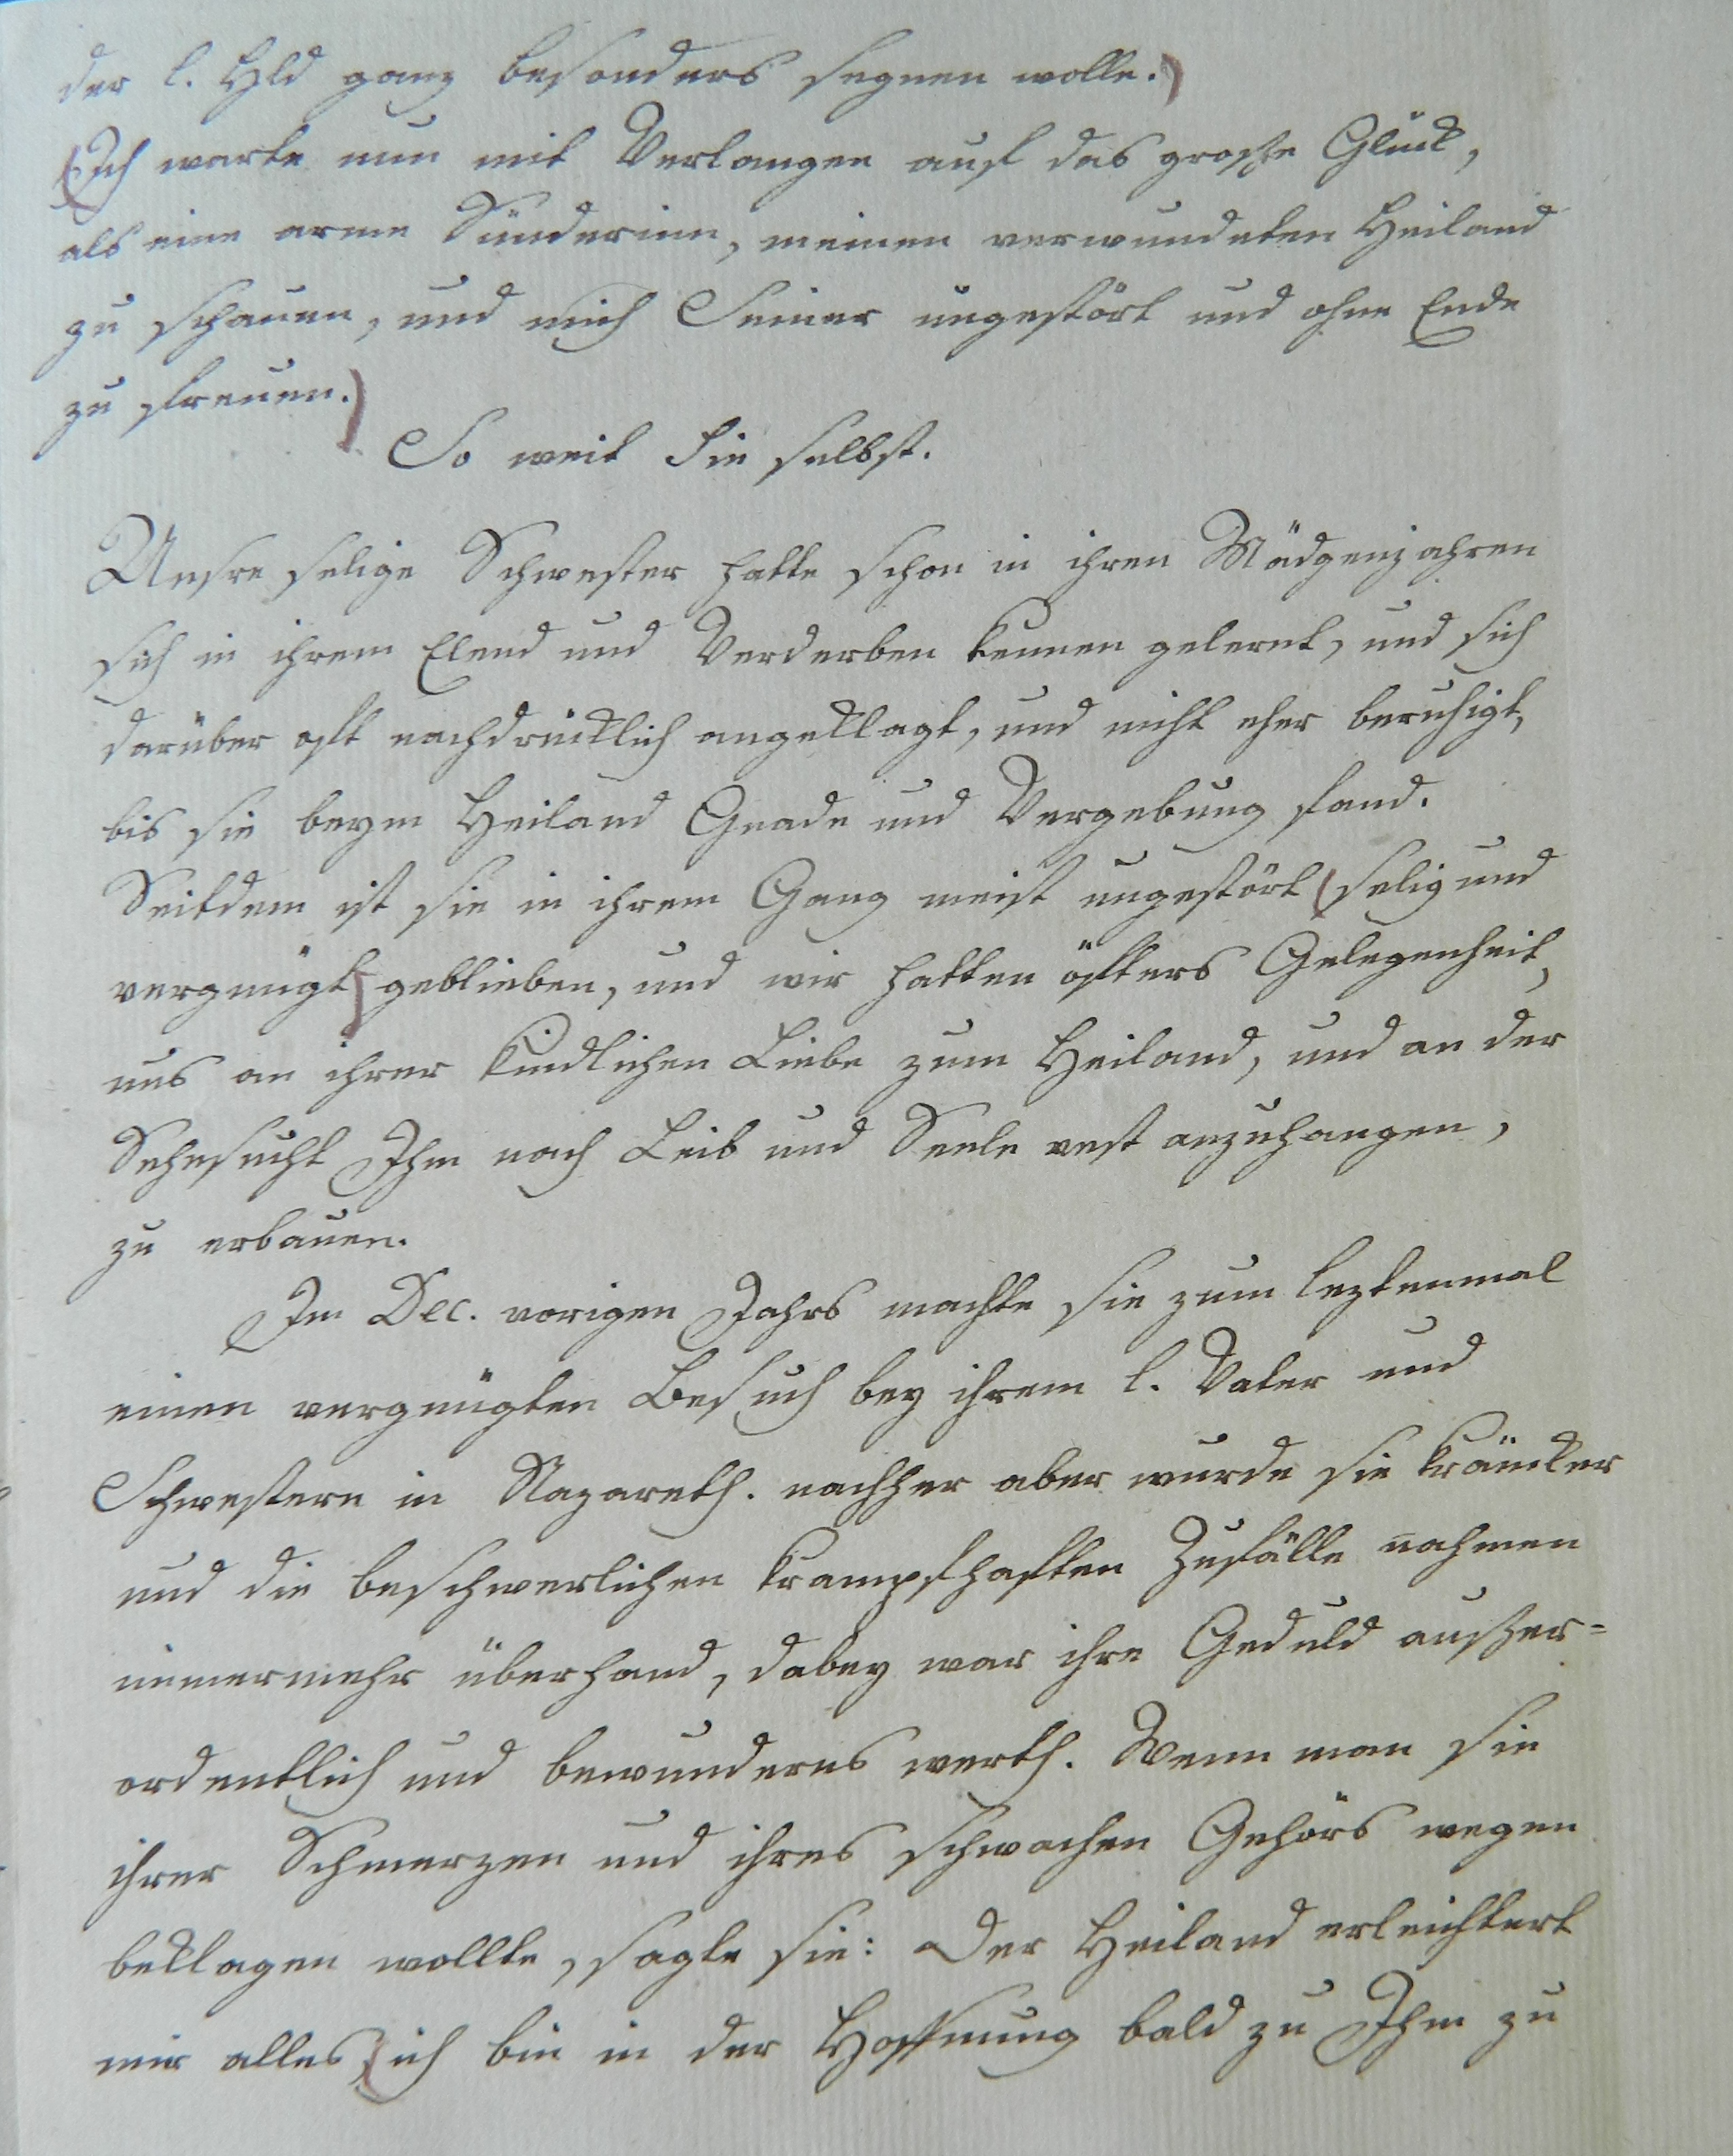 der l. Hld ganz besonders segnen wolle.)
(Ich warte nun mit Verlangen auf das große Glück,
als eine arme Sünderinn, meinen verwundeten Heiland
zu schauen, und mich Seiner ungestört und ohne Ende
zu freuen.)
So weit Sie selbst.
Unsre selige Schwester hatte schon in ihren Mädgenjahren
sich in ihrem Elend und Verderben kennen gelernt, und sich
darüber oft nachdrücklich angeklagt, und nicht eher beruhigt,
bis sie beym Heiland Gnade und Vergebung fand.
Seitdem ist sie in ihrem Gang meist ungestört (selig und
vergnügt) geblieben, und wir hatten öfters Gelegenheit,
uns an ihrer kindlichen Liebe zum Heiland, und an der
Sehnsucht Ihm nach Leib und Seele vest anzuhangen,
zu erbauen.
Im Dec. vorigen Jahrs machte sie zum leztenmal
einen vergnügten Besuch bey ihrem l. Vater und
Schwestern in Nazareth. nachher aber wurde sie kräncker
und die beschwerlichen krampfhaften Zufälle nahmen
immermehr überhand, dabey war ihre Geduld außer=
ordentlich und bewunderns werth. Wenn man sie
ihrer Schmerzen und ihres schwachen Gehörs wegen
beklagen wollte, sagte sie: Der Heiland erleichtert
mir alles, (ich bin in der Hoffnung bald zu Ihm zu